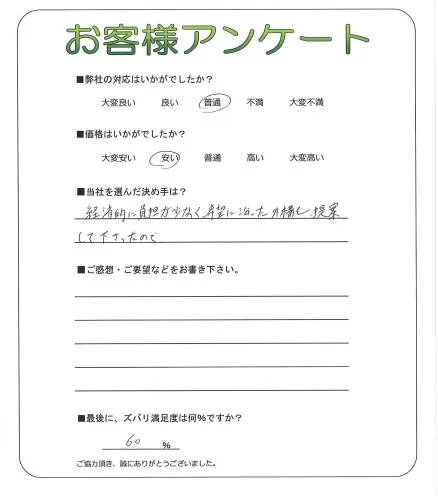 お客様アンケート
■弊社の対応はいかがでしたか？
大変良い 良い 普通 不満 大変不満
■価格はいかがでしたか？
大変安い 安い 普通 高い 大変高い
■当社を選んだ決め手は？
経済的に負担が少なく、希望に沿った外構を提案
して下さったので
■ご感想・ご要望などをお書き下さい。
■最後に、ズバリ満足度は何%ですか？
60 %
ご協力頂き、誠にありがとうございました。